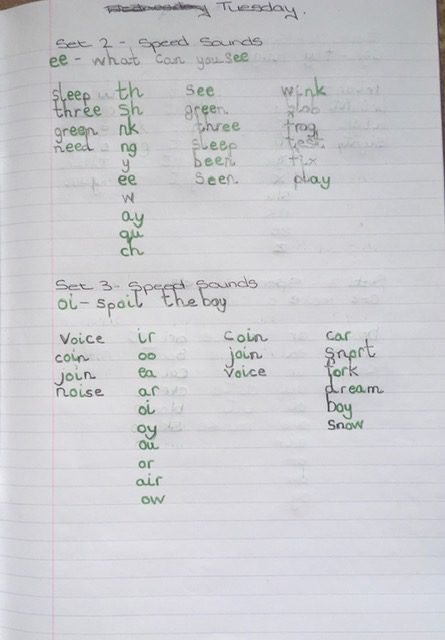 Tuesday.
Set 2 - Speed Sounds
ee - what can you see
sleep th see wink
three sh green
green nk three frog
need ng sleep test
y been fix
ee seen. play
w
ay
qu
ch
Set 3 - Speed Sounds
oi - spoil the boy
voice ir coin car
coin oo join snort
join ea voice fork
noise ar dream
oi boy
oy snow
ou
or
air
ow